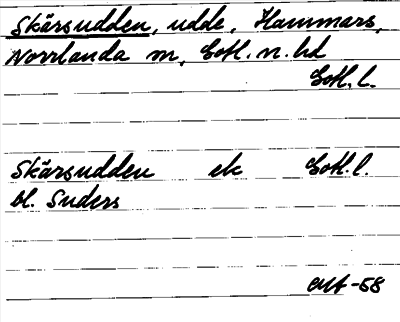 Skärsudden, udde, Hammars,
Norrlanda sn, Gotl. n. hd
Gotl. l.
Skärsudden ek Gotl. l.
bl. Suders
-58